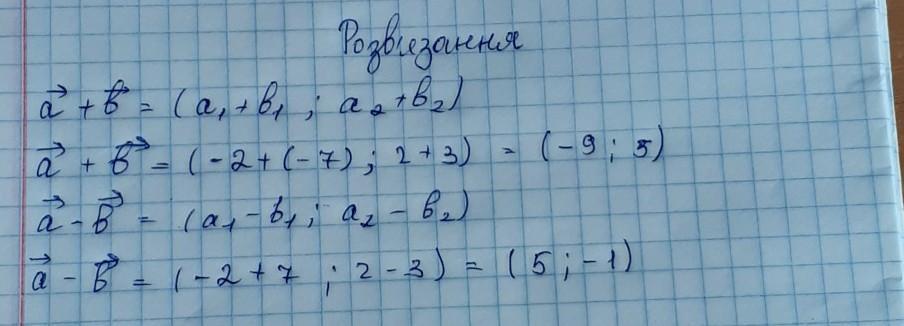 Розвʼязання
a⃗ + b⃗ = (a₁+b₁ ; a₂+b₂)
a⃗ + b⃗ = (-2+(-7) ; 2+3) = (-9 ; 5)
a⃗ - b⃗ = (a₁-b₁ ; a₂-b₂)
a⃗ - b⃗ = (-2+7 ; 2-3) = (5 ; -1)